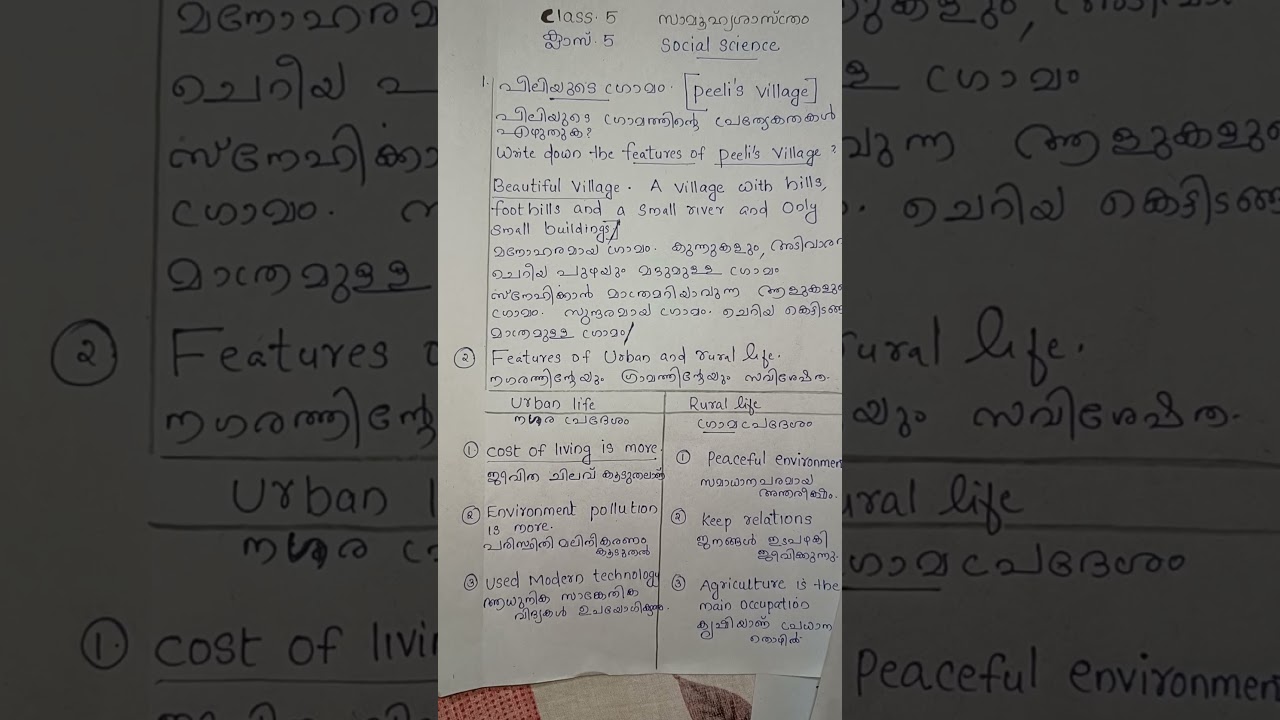 Class. 5 സാമൂഹ്യശാസ്ത്രം
ക്ലാസ്. 5 Social Science
1. പീലിയുടെ ഗ്രാമം. [Peeli's Village]
പീലിയുടെ ഗ്രാമത്തിന്റെ പ്രത്യേകതകൾ
എഴുതുക?
Write down the features of peeli's Village?
Beautiful Village. A village with hills,
foothills and a small river and Only
small buildings/
മനോഹരമായ ഗ്രാമം. കുന്നുകളും, അടിവാര
ചെറിയ പുഴയും മറ്റുമുള്ള ഗ്രാമം
സ്നേഹിക്കാൻ മാത്രമറിയാവുന്ന ആളുകളു
ഗ്രാമം. സുന്ദരമായ ഗ്രാമം. ചെറിയ കെട്ടിടങ്ങ
മാത്രമുള്ള ഗ്രാമം/
② Features of Urban and rural life.
നഗരത്തിന്റേയും ഗ്രാമത്തിന്റേയും സവിശേഷത.
Urban life
നഗര പ്രദേശം
① cost of living is more.
ജീവിത ചിലവ് കൂടുതലാണ്
② Environment pollution
is more.
പരിസ്ഥിതി മലിനീകരണം
കൂടുതൽ
③ Used Modern technology
ആധുനിക സാങ്കേതിക
വിദ്യകൾ ഉപയോഗിക്കുന്നു.
Rural life
ഗ്രാമപ്രദേശം
① Peaceful environmen
സമാധാനപരമായ
അന്തരീക്ഷം.
② Keep relations
ജനങ്ങൾ ഇടപഴകി
ജീവിക്കുന്നു.
③ Agriculture is the
main occupation
കൃഷിയാണ് പ്രധാന
തൊഴിൽ